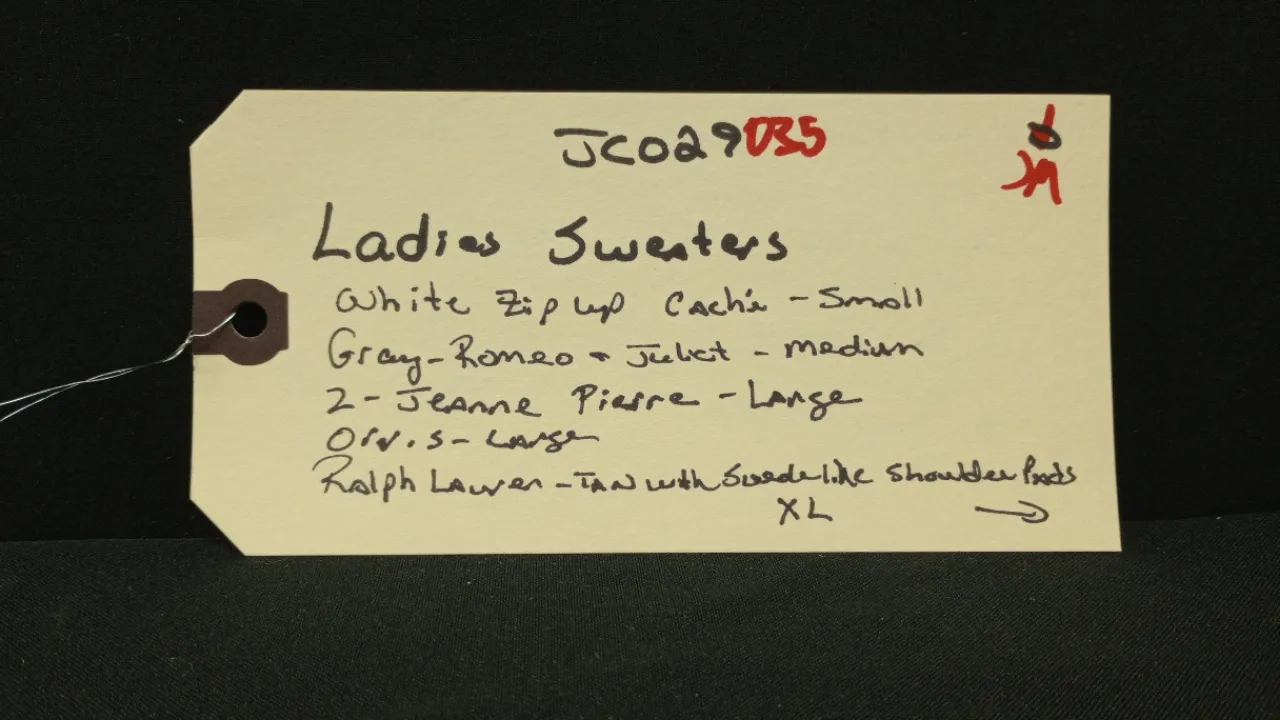 JC029035
JM
Ladies Sweaters
White Zip up Caché - Small
Gray - Romeo + Juliet - Medium
2 - Jeanne Pierre - Large
Orvis - Large
Ralph Lauren - Tan with Suede like Shoulder Pads
XL →